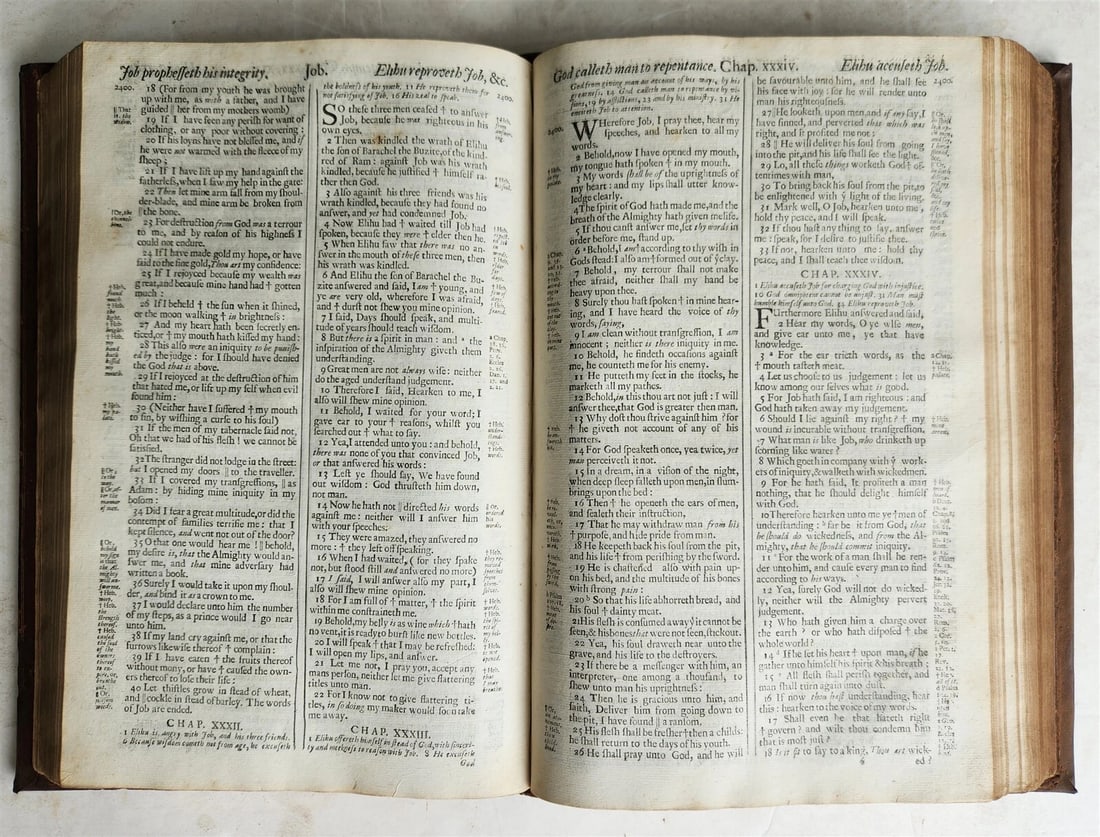 Job propheſſeth his integrity.
Job.
Elihu reproveth Job, &c.
2400.
18 (For from my youth he was brought
up with me, as with a father, and I have
guided || her from my mothers womb)
19 If I have ſeen any periſh for want of
clothing, or any poor without covering :
20 If his loyns have not bleſſed me, and if
he were not warmed with the fleece of my
ſheep ;
21 If I have lift up my hand againſt the
fatherleſs, when I ſaw my help in the gate:
22 Then let mine arm fall from my ſhoul-
der-blade, and mine arm be broken from
|| the bone.
23 For deſtruction from God was a terrour
to me, and by reaſon of his highneſs I
could not endure.
24 If I have made gold my hope, or have
ſaid to the fine gold, Thou art my confidence:
25 If I rejoyced becauſe my wealth was
great, and becauſe mine hand had † gotten
much :
26 If I beheld † the ſun when it ſhined,
or the moon walking † in brightneſs :
27 And my heart hath been ſecretly en-
ticed, or † my mouth hath kiſſed my hand:
28 This alſo were an iniquity to be puniſh-
ed by the judge : for I ſhould have denied
the God that is above.
29 If I rejoyced at the deſtruction of him
that hated me, or lift up my ſelf when evil
found him :
30 (Neither have I ſuffered † my mouth
to ſin, by wiſhing a curſe to his ſoul)
31 If the men of my tabernacle ſaid not,
Oh that we had of his fleſh ! we cannot be
ſatisfied.
32 The ſtranger did not lodge in the ſtreet:
but I opened my doors || to the traveller.
33 If I covered my tranſgreſſions, || as
Adam : by hiding mine iniquity in my
boſom :
34 Did I fear a great multitude, or did the
contempt of families terrifie me : that I
kept ſilence, and went not out of the door?
35 O that one would hear me ! || behold,
my deſire is, that the Almighty would an-
ſwer me, and that mine adverſary had
written a book.
36 Surely I would take it upon my ſhoul-
der, and bind it as a crown to me.
37 I would declare unto him the number
of my ſteps, as a prince would I go near
unto him.
38 If my land cry againſt me, or that the
furrows likewiſe thereof † complain :
39 If I have eaten † the fruits thereof
without mony, or have † cauſed the own-
ers thereof to loſe their life :
40 Let thiſtles grow in ſtead of wheat,
and || cockle in ſtead of barley. The words
of Job are ended.
CHAP. XXXII.
1 Elihu is angry with Job, and his three friends.
6 Becauſe wiſdom cometh not from age, he excuſeth
the boldneſs of his youth. 11 He reproveth them for
not ſatisfying of Job. 16 His zeal to ſpeak.
2400.
SO theſe three men ceaſed † to anſwer
Job, becauſe he was righteous in his
own eyes.
2 Then was kindled the wrath of Elihu
the ſon of Barachel the Buzite, of the kind-
red of Ram : againſt Job was his wrath
kindled, becauſe he juſtified † himſelf ra-
ther then God.
3 Alſo againſt his three friends was his
wrath kindled, becauſe they had found no
anſwer, and yet had condemned Job.
4 Now Elihu had † waited till Job had
ſpoken, becauſe they were † elder then he.
5 When Elihu ſaw that there was no an-
ſwer in the mouth of theſe three men, then
his wrath was kindled.
6 And Elihu the ſon of Barachel the Bu-
zite anſwered and ſaid, I am † young, and
ye are very old, wherefore I was afraid,
and † durſt not ſhew you mine opinion.
7 I ſaid, Days ſhould ſpeak, and multi-
tude of years ſhould teach wiſdom.
8 But there is a ſpirit in man : and * the
inſpiration of the Almighty giveth them
underſtanding.
9 Great men are not always wiſe: neither
do the aged underſtand judgement.
10 Therefore I ſaid, Hearken to me, I
alſo will ſhew mine opinion.
11 Behold, I waited for your words; I
gave ear to your † reaſons, whilſt you
ſearched out † what to ſay.
12 Yea, I attended unto you : and behold,
there was none of you that convinced Job,
or that anſwered his words :
13 Leſt ye ſhould ſay, We have found
out wiſdom : God thruſteth him down,
not man.
14 Now he hath not || directed his words
againſt me : neither will I anſwer him
with your ſpeeches.
15 They were amazed, they anſwered no
more : † they left off ſpeaking.
16 When I had waited, (for they ſpake
not, but ſtood ſtill and anſwered no more)
17 I ſaid, I will anſwer alſo my part, I
alſo will ſhew mine opinion.
18 For I am full of † matter, † the ſpirit
within me conſtraineth me.
19 Behold, my belly is as wine which † hath
no vent, it is ready to burſt like new bottles.
20 I will ſpeak † that I may be refreſhed:
I will open my lips, and anſwer.
21 Let me not, I pray you, accept any
mans perſon, neither let me give flattering
titles unto man.
22 For I know not to give flattering ti-
tles, in ſo doing my maker would ſoon take
me away.
CHAP. XXXIII.
1 Elihu offereth himſelf in ſtead of God, with ſinceri-
ty and meekneſs to reaſon with Job. 8 He excuſeth
God
God calleth man to repentance.
Chap. xxxiv.
Elihu accuſeth Job.
God from giving man an account of his ways, by his
greatneſs. 14 God calleth man to repentance by vi-
ſions, 19 by afflictions, 23 and by his miniſtry. 31 He
exciteth Job to attention.
2400.
WHerefore Job, I pray thee, hear my
ſpeeches, and hearken to all my
words.
2 Behold, now I have opened my mouth,
my tongue hath ſpoken † in my mouth.
3 My words ſhall be of the uprightneſs of
my heart : and my lips ſhall utter know-
ledge clearly.
4 The ſpirit of God hath made me, and the
breath of the Almighty hath given me life.
5 If thou canſt anſwer me, ſet thy words in
order before me, ſtand up.
6 * Behold, I am † according to thy wiſh in
Gods ſtead: I alſo am † formed out of ẏ clay.
7 Behold, my terrour ſhall not make
thee afraid, neither ſhall my hand be
heavy upon thee.
8 Surely thou haſt ſpoken † in mine hear-
ing, and I have heard the voice of thy
words, ſaying,
9 I am clean without tranſgreſſion, I am
innocent ; neither is there iniquity in me.
10 Behold, he findeth occaſions againſt
me, he counteth me for his enemy.
11 He putteth my feet in the ſtocks, he
marketh all my pathes.
12 Behold, in this thou art not juſt : I will
anſwer thee, that God is greater then man.
13 Why doſt thou ſtrive againſt him ? for
† he giveth not account of any of his
matters.
14 For God ſpeaketh once, yea twice, yet
man perceiveth it not.
15 In a dream, in a viſion of the night,
when deep ſleep falleth upon men, in ſlum-
brings upon the bed :
16 Then † he openeth the ears of men,
and ſealeth their inſtruction,
17 That he may withdraw man from his
† purpoſe, and hide pride from man.
18 He keepeth back his ſoul from the pit,
and his life † from periſhing by the ſword.
19 He is chaſtened alſo with pain up-
on his bed, and the multitude of his bones
with ſtrong pain :
20 So that his life abhorreth bread, and
his ſoul † dainty meat.
21 His fleſh is conſumed away ẏ it cannot be
ſeen, & his bones that were not ſeen, ſtick out.
22 Yea, his ſoul draweth near unto the
grave, and his life to the deſtroyers.
23 If there be a meſſenger with him, an
interpreter, one among a thouſand, to
ſhew unto man his uprightneſs :
24 Then he is gracious unto him, and
ſaith, Deliver him from going down to
the pit, I have found || a ranſom.
25 His fleſh ſhall be freſher † then a childs:
he ſhall return to the days of his youth.
26 He ſhall pray unto God, and he will
be favourable unto him, and he ſhall ſee
his face with joy : for he will render unto
man his righteouſneſs.
2400.
27 || He looketh upon men, and if any ſay, I
have ſinned, and perverted that which was
right, and it profited me not ;
28 || He will deliver his ſoul from going
into the pit, and his life ſhall ſee the light.
29 Lo, all theſe things worketh God † of-
tentimes with man,
30 To bring back his ſoul from the pit, to
be enlightened with ẏ light of the living.
31 Mark well, O Job, hearken unto me,
hold thy peace, and I will ſpeak.
32 If thou haſt any thing to ſay, anſwer
me : ſpeak, for I deſire to juſtifie thee.
33 If not, hearken unto me : hold thy
peace, and I ſhall teach thee wiſdom.
CHAP. XXXIV.
1 Elihu accuſeth Job for charging God with injuſtice.
10 God omnipotent cannot be unjuſt. 31 Man muſt
humble himſelf unto God. 34 Elihu reproveth Job.
FUrthermore Elihu anſwered and ſaid,
2 Hear my words, O ye wiſe men,
and give ear unto me, ye that have
knowledge.
3 * For the ear trieth words, as the
† mouth taſteth meat.
4 Let us chooſe to us judgement : let us
know among our ſelves what is good.
5 For Job hath ſaid, I am righteous : and
God hath taken away my judgement.
6 Should I lie againſt my right ? † my
wound is incurable without tranſgreſſion.
7 What man is like Job, who drinketh up
ſcorning like water ?
8 Which goeth in company with ẏ work-
ers of iniquity, & walketh with wicked men.
9 For he hath ſaid, It profiteth a man
nothing, that he ſhould delight himſelf
with God.
10 Therefore hearken unto me ye † men of
underſtanding : * far be it from God, that
he ſhould do wickedneſs, and from the Al-
mighty, that he ſhould commit iniquity.
11 * For the work of a man ſhall he ren-
der unto him, and cauſe every man to find
according to his ways.
12 Yea, ſurely God will not do wicked-
ly, neither will the Almighty pervert
judgement.
13 Who hath given him a charge over
the earth ? or who hath diſpoſed † the
whole world ?
14 * If he ſet his heart † upon man, if he
gather unto himſelf his ſpirit & his breath ;
15 * All fleſh ſhall periſh together, and
man ſhall turn again unto duſt.
16 If now thou haſt underſtanding, hear
this : hearken to the voice of my words.
17 Shall even he that hateth right
† govern ? and wilt thou condemn him
that is moſt juſt ?
18 Is it fit to ſay to a king, Thou art wick-
ed ?